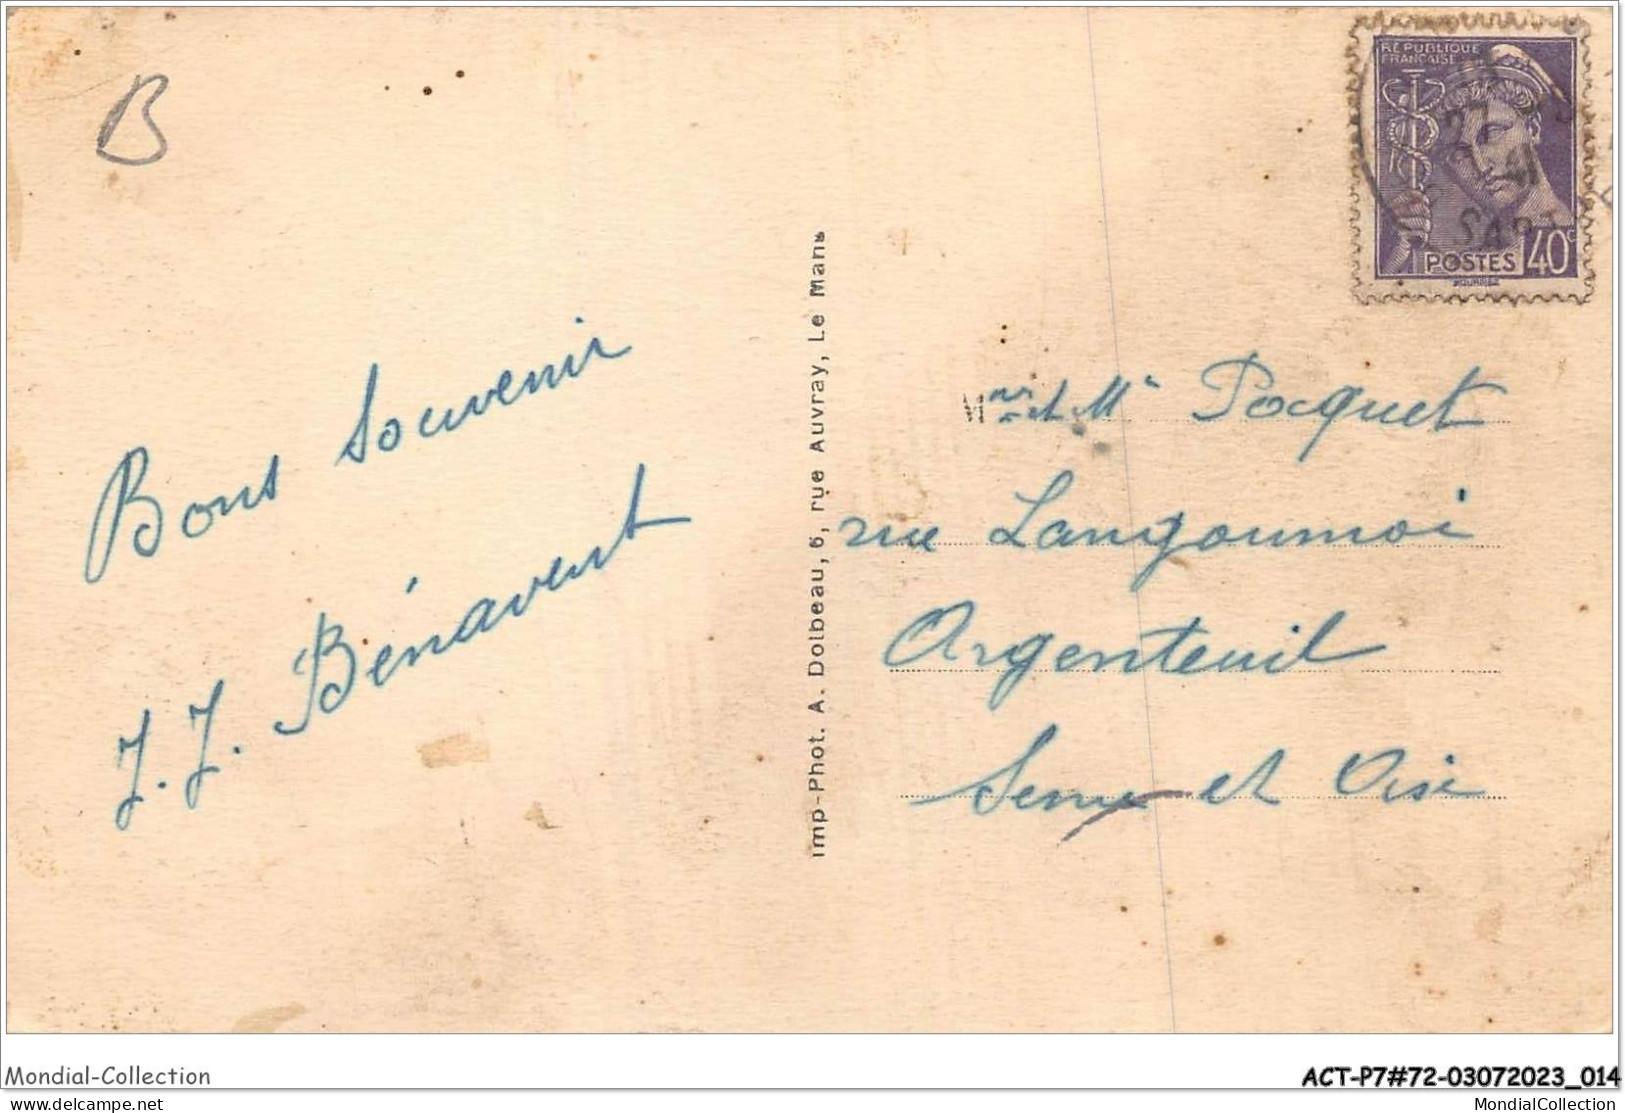 B
RÉPUBLIQUE
FRANÇAISE
27
41
SART
POSTES 40c
Bons Souvenir
J. J. Bénavent
Imp-Phot. A. Dolbeau, 6, rue Auvray, Le Mans
Mr et Me Pocquet
rue Langoumoi
Argenteuil
Seine et Oise
Mondial-Collection
ACT-P7#72-03072023_014
delcampe.net
MondialCollection